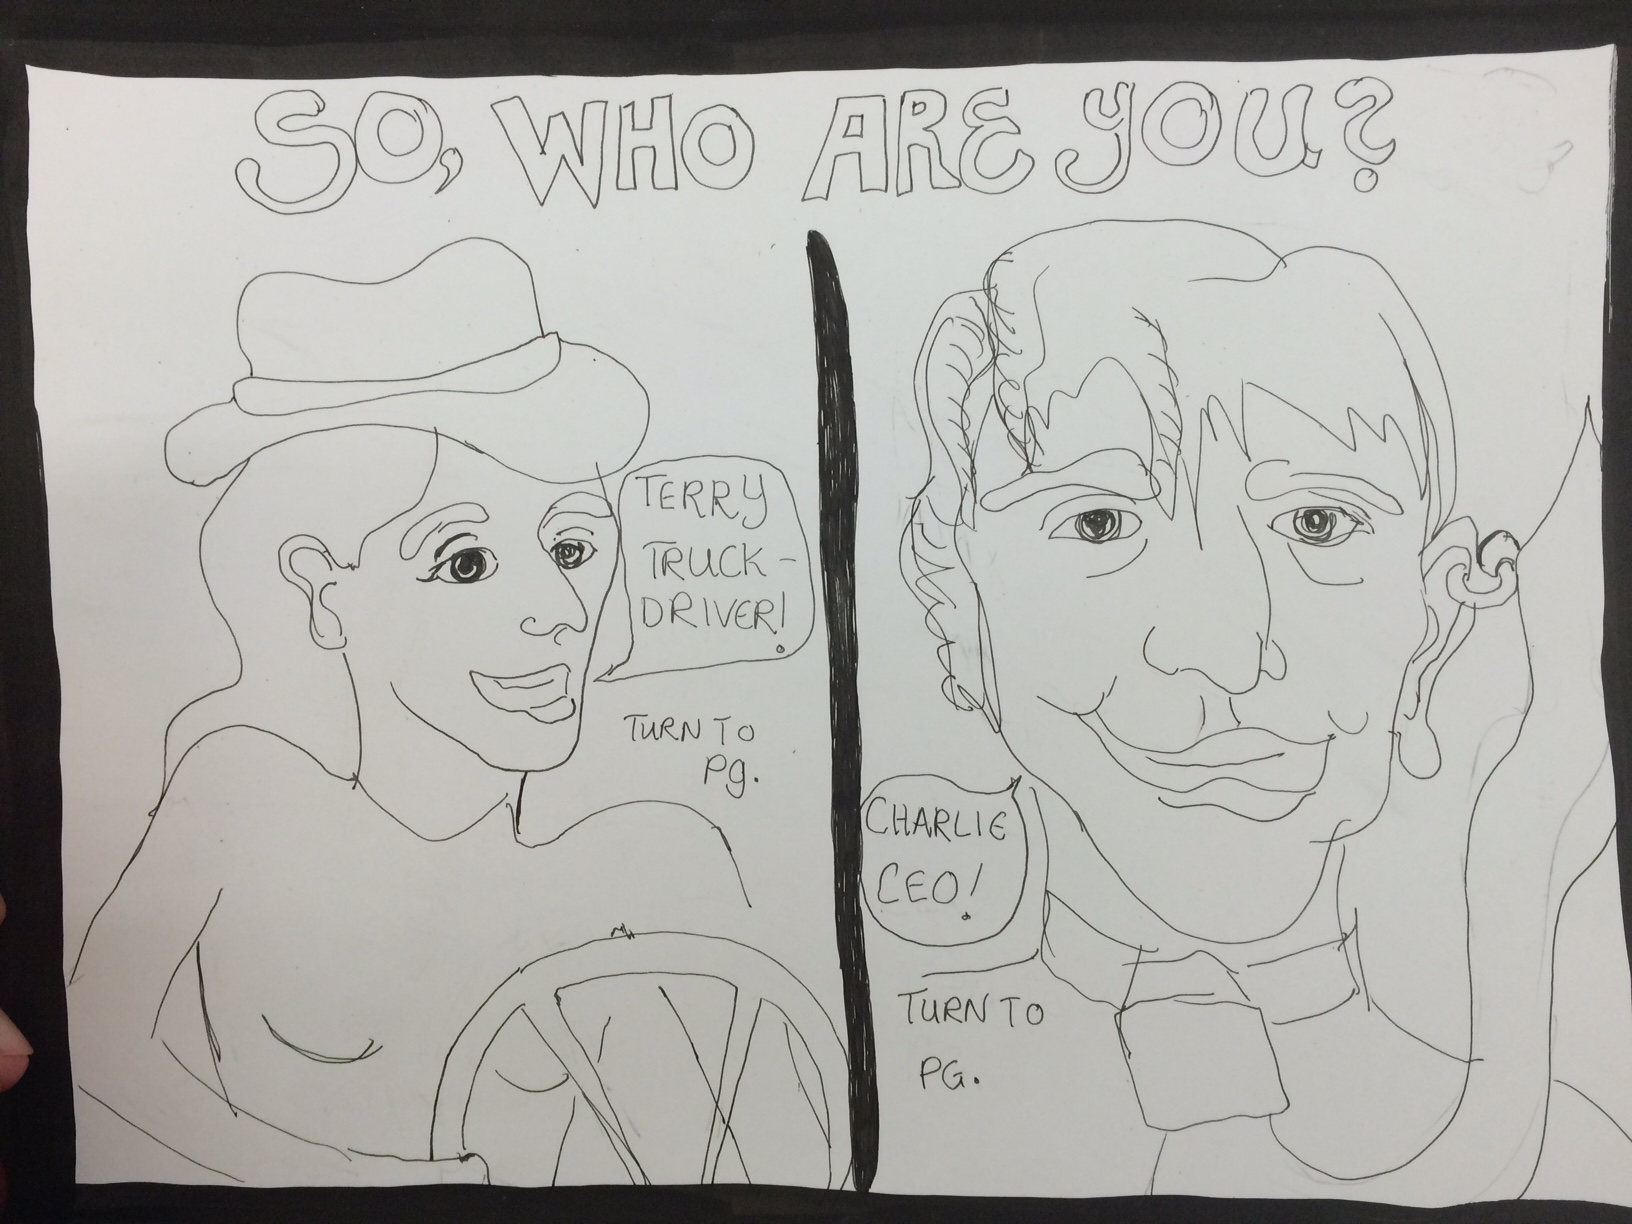 SO, WHO ARE YOU?
TERRY
TRUCK-
DRIVER!
TURN TO
Pg.
CHARLIE
CEO!
TURN TO
PG.